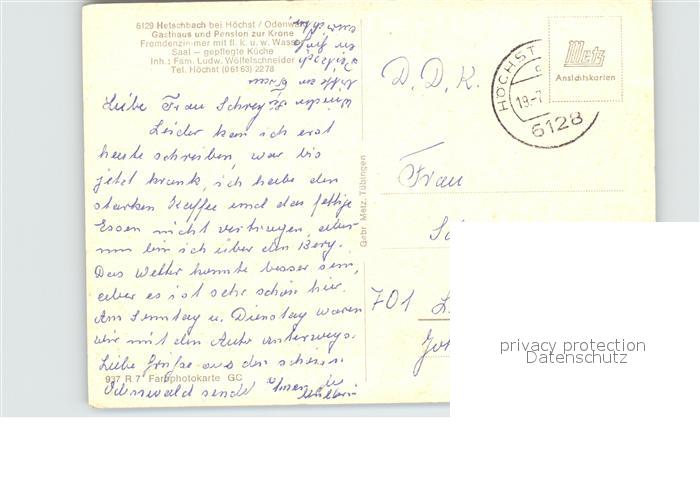 6129 Hetschbach bei Höchst / Odenwald
Gasthaus und Pension zur Krone
Fremdenzimmer mit fl. k. u. w. Wasser
Saal — gepflegte Küche
Inh.: Fam. Ludw. Wölfelschneider
Tel. Höchst (06163) 2278
Liebe Frau
Leider kan ich erst
heute schreiben, war bis
jetzt krank, ich habe den
starken Kaffee und das fettige
Essen nicht vertragen, aber
nun bin ich über den Berg.
Das Wetter konnte besser sein,
aber es ist sehr schön hier.
Am Sonntag u. Dienstag waren
wir mit den Auto unterwegs.
Liebe Grüße aus den schönen
Odenwald sendet Ihnen
937 R 7 Farbphotokarte GC
Gebr. Metz, Tübingen
D. D. R.
HÖCHST
19.-7
6128
Metz
Ansichtskarten
Frau
701
privacy protection
Datenschutz